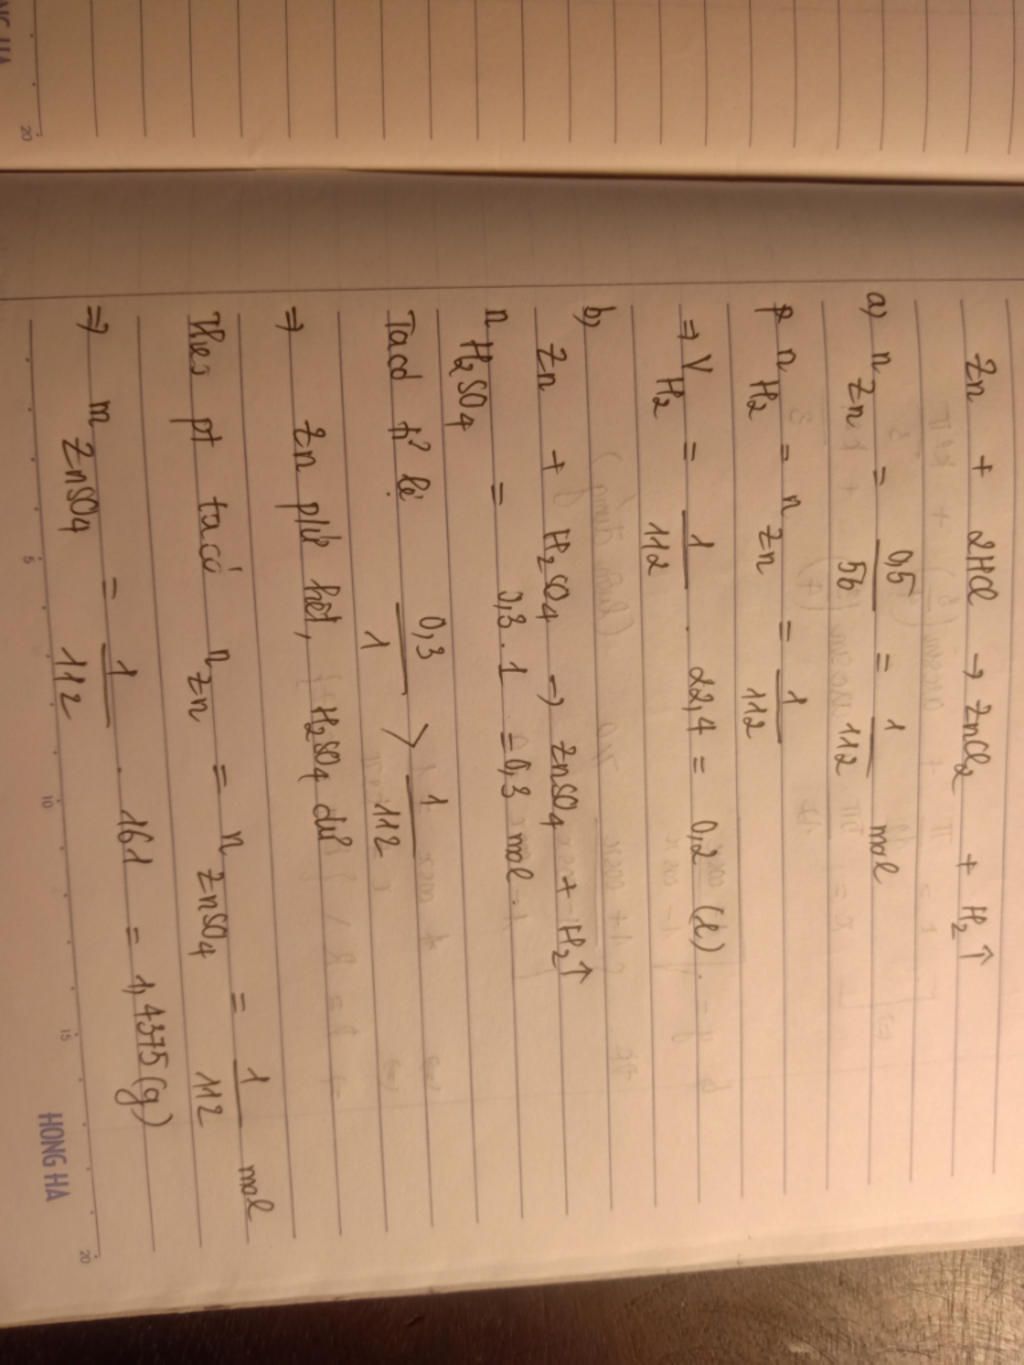 Zn + 2HCl → ZnCl₂ + H₂↑
a) n Zn = 0,5/56 = 1/112 mol
n H₂ = n Zn = 1/112
⇒ V H₂ = 1/112 . 22,4 = 0,2 (l).
b) Zn + H₂SO₄ → ZnSO₄ + H₂↑
n H₂SO₄ = 0,3 . 1 = 0,3 mol.
Tacó tỉ lệ 0,3/1 > 1/112
⇒ Zn pứ hết, H₂SO₄ dư
Theo pt tacó n Zn = n ZnSO₄ = 1/112 mol
⇒ m ZnSO₄ = 1/112 . 161 = 1,4375 (g)
5 10 15 20
HONG HA
20